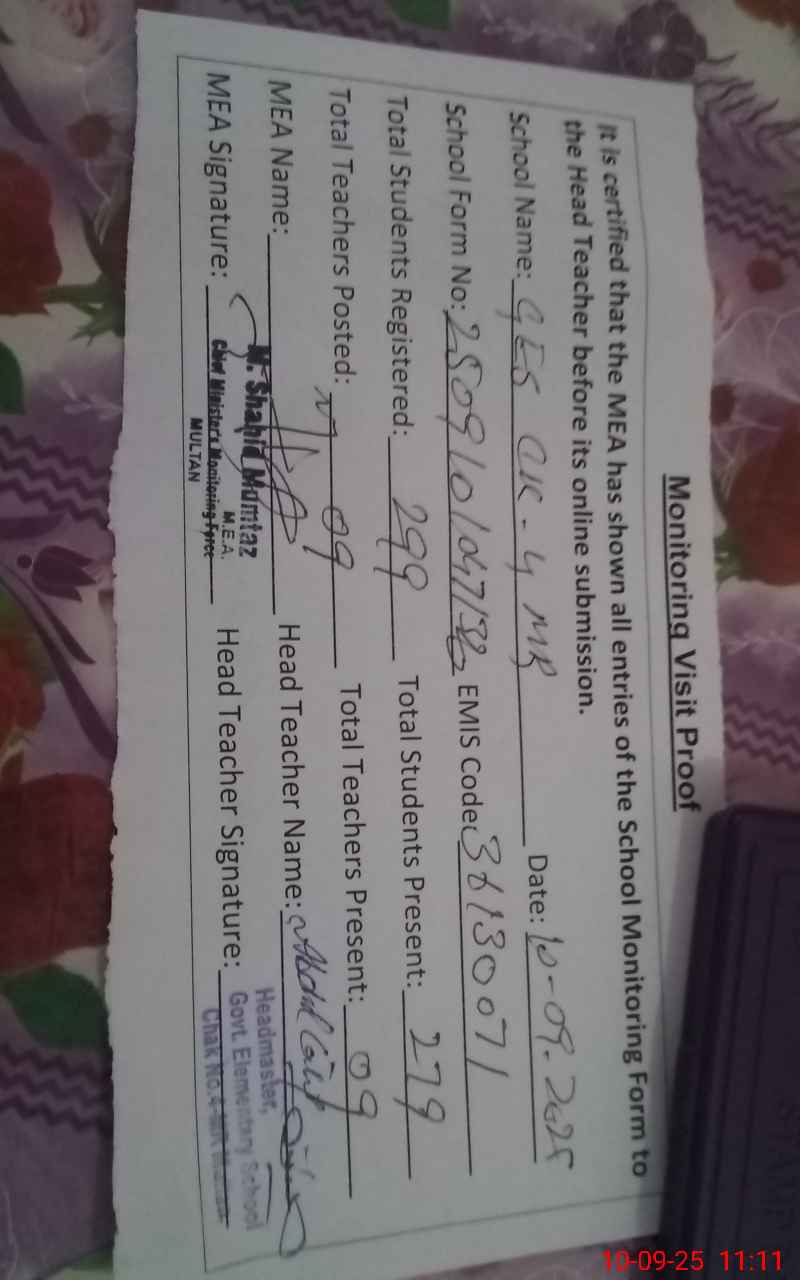 Monitoring Visit Proof
It is certified that the MEA has shown all entries of the School Monitoring Form to
the Head Teacher before its online submission.
School Name: GES CK-4 MR Date: 10-09-2025
School Form No: EMIS Code: 36130071
Total Students Registered: 299 Total Students Present: 279
Total Teachers Posted: 09 Total Teachers Present: 09
MEA Name: Head Teacher Name: Abdul
M. Shahid Mumtaz
M.E.A.
MEA Signature: Chief Minister's Monitoring Force Head Teacher Signature:
MULTAN
Headmaster,
Govt. Elementary School
Chak No.4-MR Multan
STAMP
10-09-25 11:11